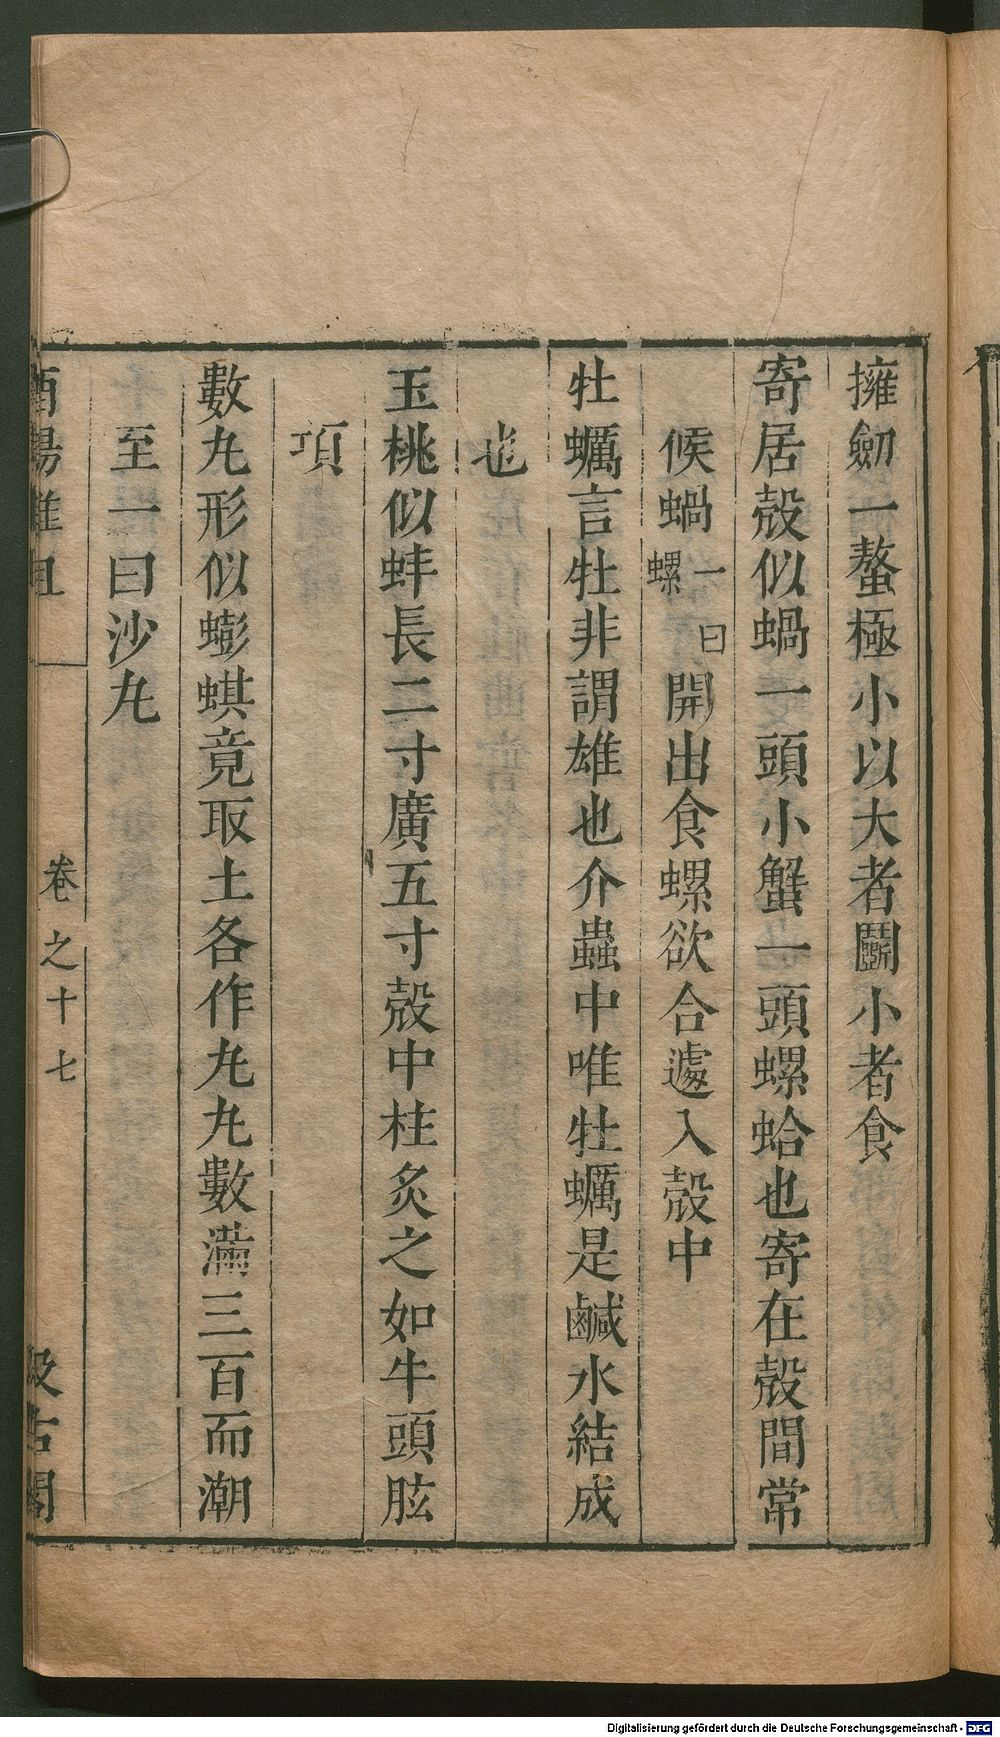 擁劒一螯極小以大者鬬小者食
寄居殼似蝸一頭小蟹一頭螺蛤也寄在殼間常
候蝸一曰螺開出食螺欲合遽入殼中
牡蠣言牡非謂雄也介蟲中唯牡蠣是鹹水結成
也
玉桃似蚌長二寸廣五寸殼中柱炙之如牛頭胘
項
數丸形似蟛蜞竟取土各作丸丸數滿三百而潮
至一曰沙丸
酉陽雜俎 卷之十七 汲古閣
Digitalisierung gefördert durch die Deutsche Forschungsgemeinschaft - DFG